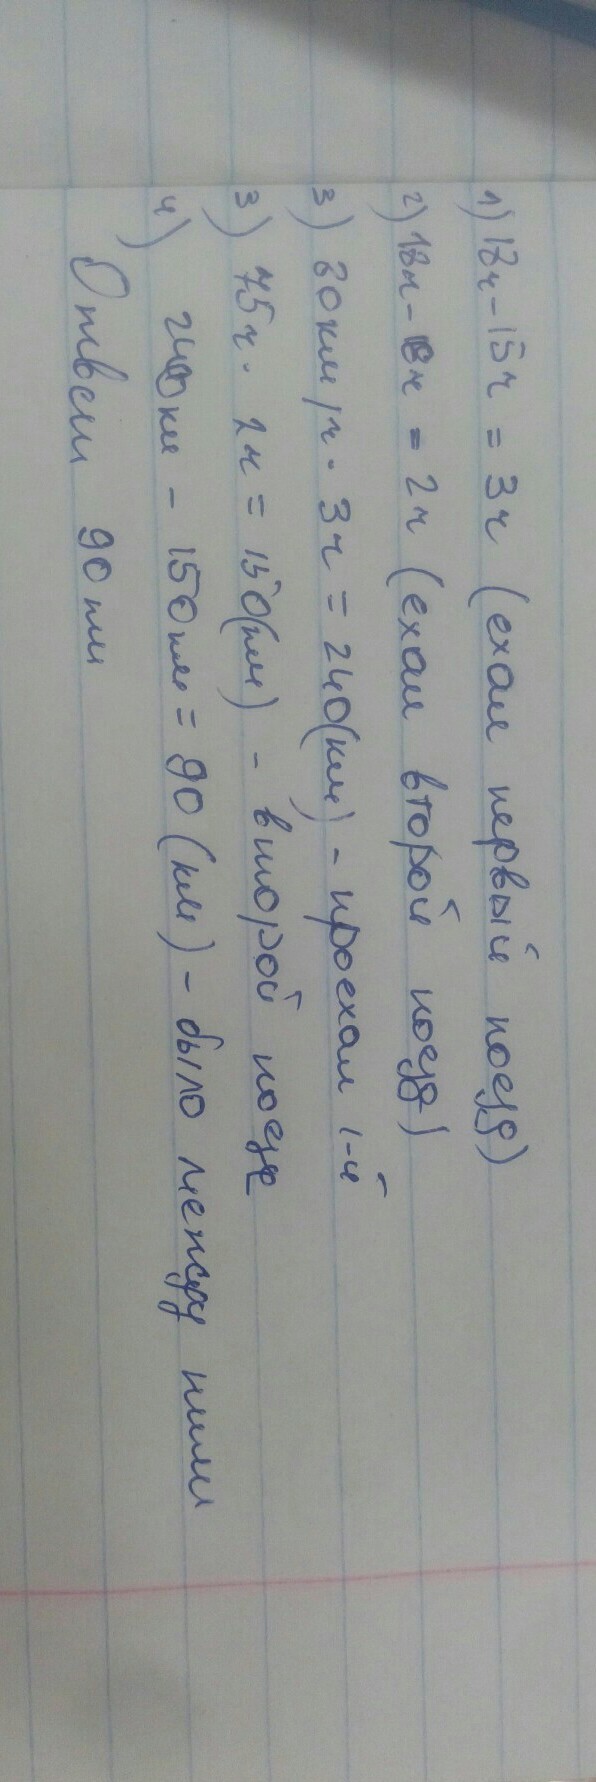 1) 18ч - 15ч = 3ч (ехал первый поезд)
2) 18ч - 16ч = 2ч (ехал второй поезд)
3) 80км/ч · 3ч = 240(км) - проехал 1-й
3) 75ч · 2ч = 150(км) - второй поезд
4) 240км - 150км = 90(км) - было между ними
Ответ 90км